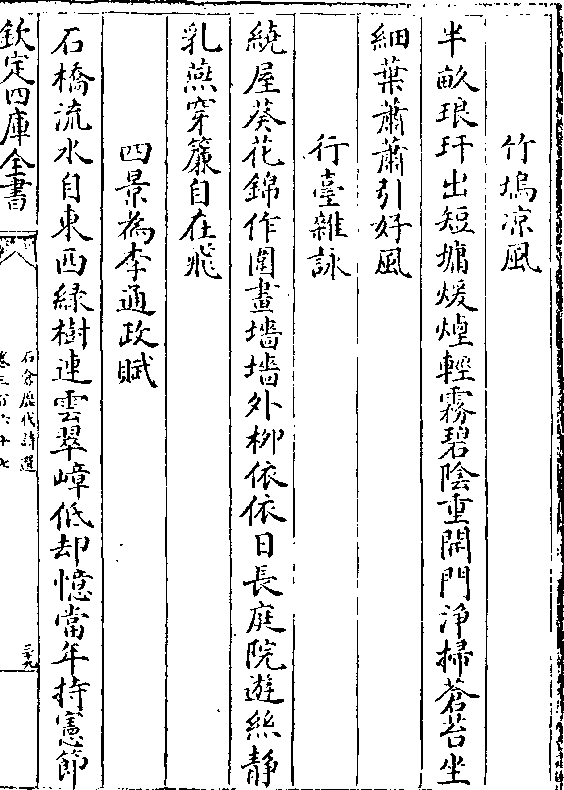 竹塢凉風
半畝琅玕出短墉煖煙輕霧碧陰重開門淨掃蒼苔坐
細葉蕭蕭引好風
行臺雜詠
繞屋葵花錦作圍畫墻墻外柳依依日長庭院遊絲靜
乳燕穿簾自在飛
四景為李通政賦
石橋流水自東西綠樹連雲翠嶂低却憶當年持憲節
欽定四庫全書
石倉歷代詩選
三十九